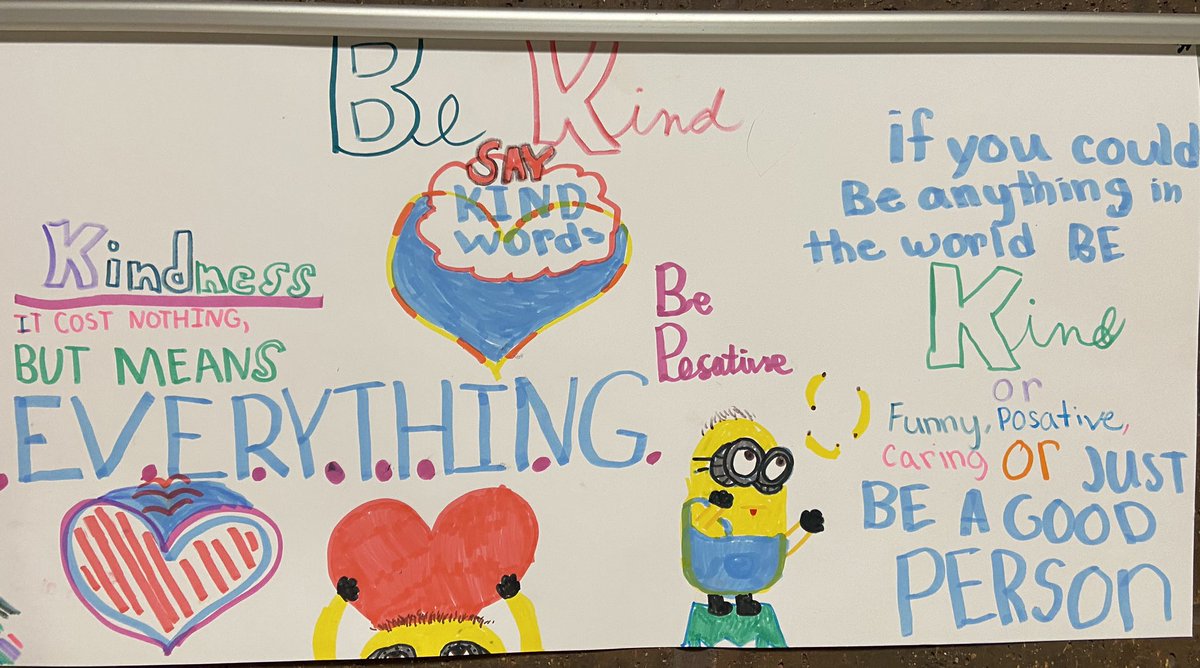 Be Kind
SAY
KIND
words
Kindness
IT COST NOTHING,
BUT MEANS
.E.V.E.R.Y.T.H.I.N.G.
Be
Posative
if you could
Be anything in
the world BE
Kind
or
Funny, Posative,
caring or JUST
BE A GOOD
PERSON